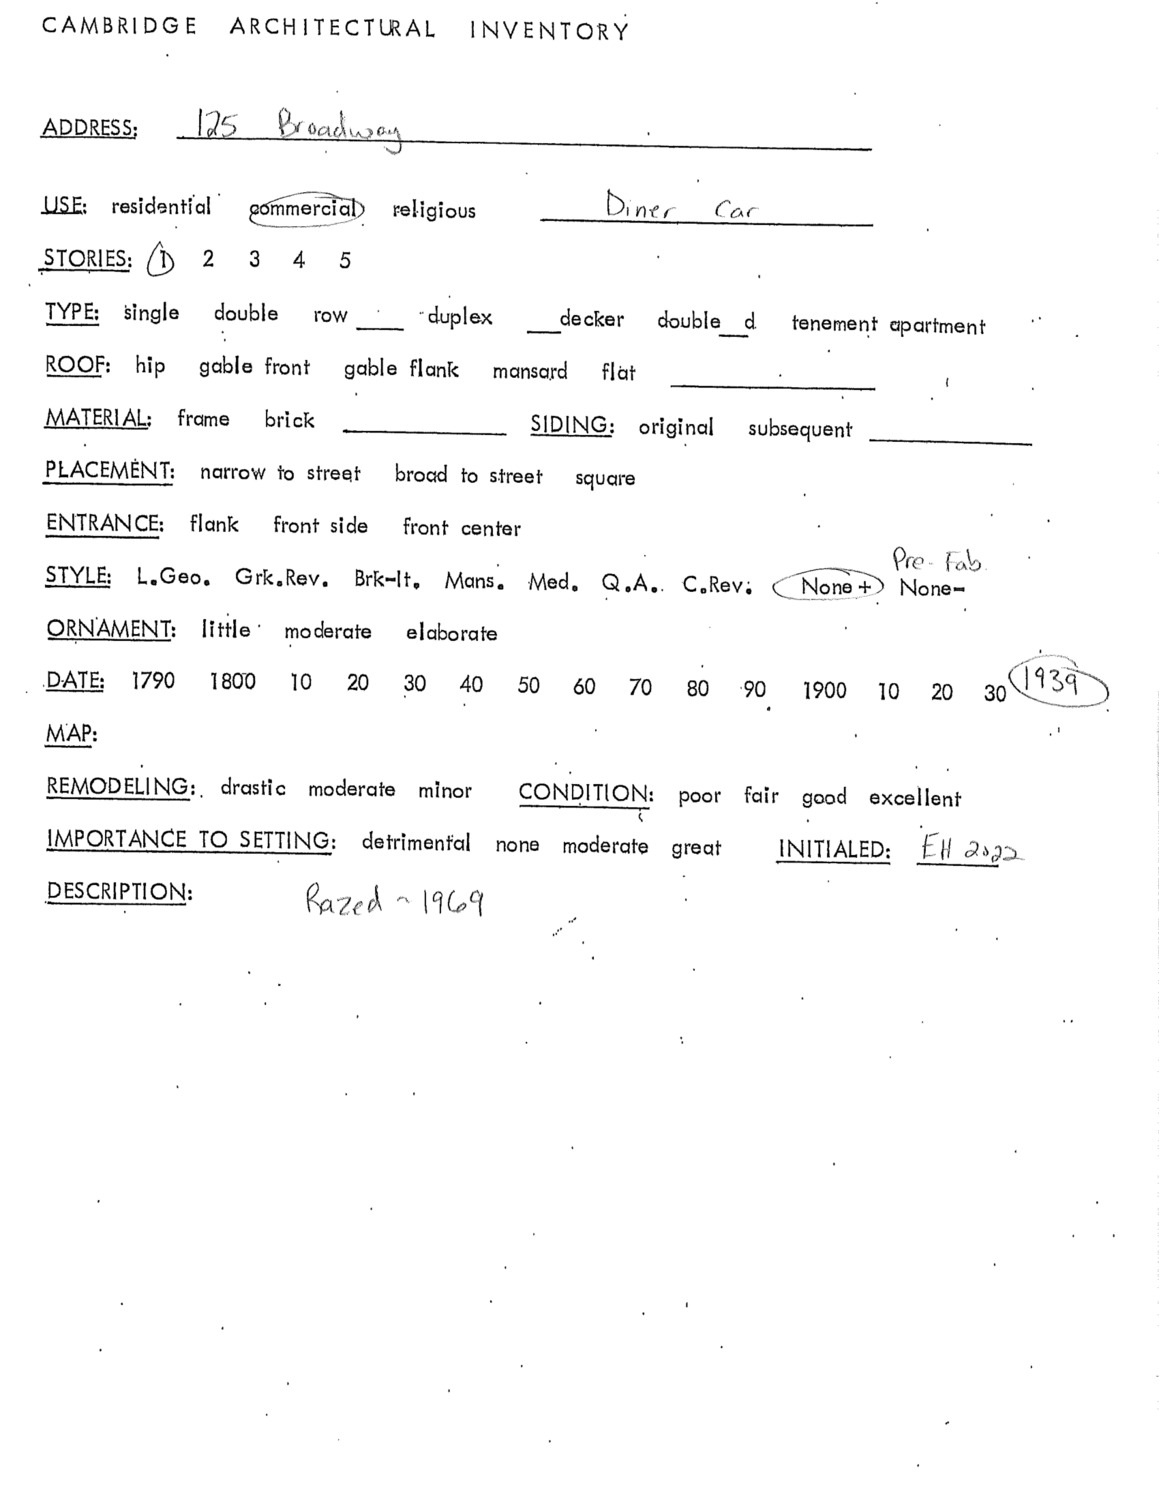 CAMBRIDGE ARCHITECTURAL INVENTORY
ADDRESS: 125 Broadway
USE: residential commercial religious Diner Car
STORIES: 1 2 3 4 5
TYPE: single double row ___ duplex ___decker double__d tenement apartment
ROOF: hip gable front gable flank mansard flat
MATERIAL: frame brick ___ SIDING: original subsequent ___
PLACEMENT: narrow to street broad to street square
ENTRANCE: flank front side front center
Pre-Fab.
STYLE: L.Geo. Grk.Rev. Brk-It. Mans. Med. Q.A. C.Rev. None+ None-
ORNAMENT: little moderate elaborate
DATE: 1790 1800 10 20 30 40 50 60 70 80 90 1900 10 20 30 1939
MAP:
REMODELING: drastic moderate minor CONDITION: poor fair good excellent
IMPORTANCE TO SETTING: detrimental none moderate great INITIALED: EH 2022
DESCRIPTION: Razed ~ 1969